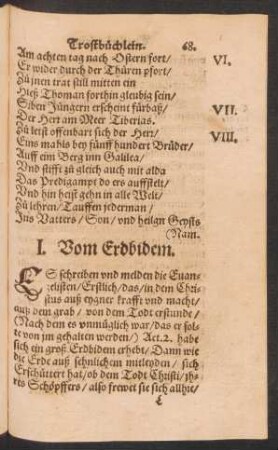 Trostbüchlein. 68.
Am achten tag nach Ostern fort/ VI.
Er wider durch der Thüren pfort/
Zů jnen trat still mitten ein
Hieß Thoman forthin gleubig sein/
Siben Jüngern erscheint fürbaß/ VII.
Der Herr am Meer Tiberias.
Zů letst offenbart sich der Herr/ VIII.
Eins mahls bey fünff hundert Brüder/
Auff eim Berg inn Galilea/
Vnd stifft zů gleich auch mit alda
Das Predigampt do ers auffstelt/
Vnd hin heist gehn in alle Welt/
Zů lehren/ Tauffen jederman/
Ins Vatters/ Son/ vnd heilgn Geysts
(Nam.
I. Vom Erdbidem.
ES schreiben vnd melden die Euan-
gelisten/ Erstlich/ das/ in dem Chri-
stus auß eygner krafft vnd macht/
nun dem grab/ von dem Todt erstunde/
(Nach dem es vnmüglich war/ das er sol-
te von jm gehalten werden/) Act. 2. habe
sich ein groß Erdbidem erhebt/ Dann wie
die Erde auß sehnlichem mitleyden/ sich
Erschüttert hat/ ob dem Todt Christi/ jh-
res Schöpffers/ also frewet sie sich allhie/